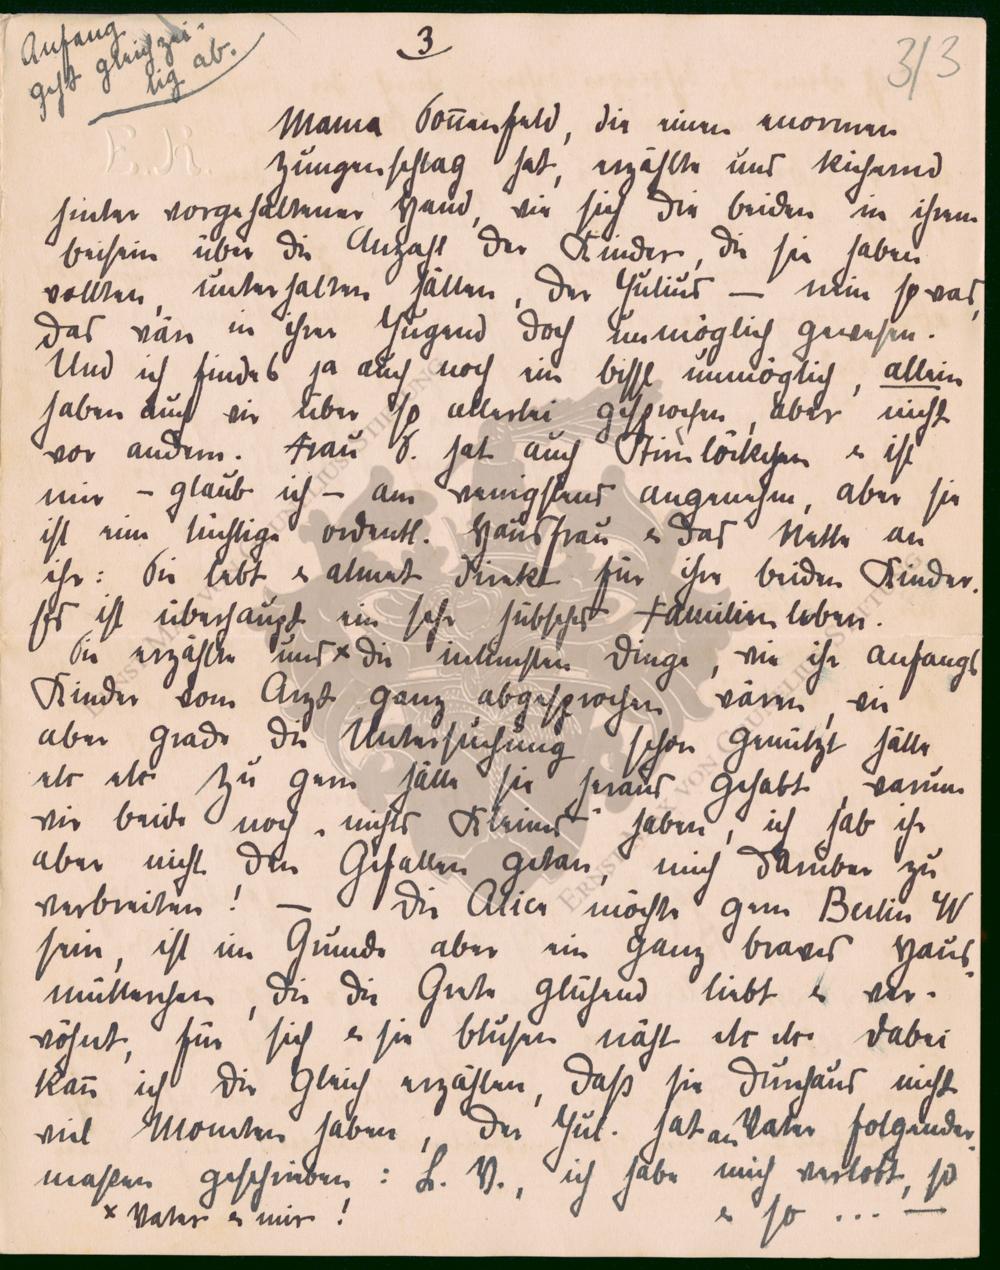 Anfang
geht gleichzei-
tig ab.
3
3/3
E.K.
Mama Sonnenfeld, die einen enormen
Zungenschlag hat, erzählte uns kichernd
hinter vorgehaltener Hand, wie sich die beiden in ihrem
beisein über die Anzahl der Kinder, die sie haben
wollten, unterhalten hätten, der Julius — nein so was,
das wär in ihrer Jugend doch unmöglich gewesen.
Und ich findes ja auch noch ein bissl unmöglich, allein
haben auch wir über so allerlei gesprochen, aber nicht
vor andern. Frau S. hat auch Stirnlöckchen & ist
mir – glaub ich – am wenigstens angenehm, aber sie
ist eine tüchtige ordentl. Hausfrau & das Nette an
ihr: Sie lebt & atmet direkt für ihre beiden Kinder.
Es ist überhaupt ein sehr hübsches Familienleben.
Sie erzählte uns x die intimsten Dinge, wie ihr anfangs
Kinder vom Arzt ganz abgesprochen wären, wie
aber grade die Untersuchung schon genützt hätte
etc etc Zu gern hätte sie heraus gehabt, warum
wir beide noch „nichts Kleines“ haben, ich hab ihr
aber nicht den Gefallen getan, mich darüber zu
verbreiten! — Die Alice möchte gern Berlin W
sein, ist im Grunde aber ein ganz braves Haus-
mütterchen, die die Grete glühend liebt & ver-
wöhnt, für sich & sie blusen näht etc etc dabei
kann ich Dir gleich erzählen, daß sie durchaus nicht
viel Moneten haben, der Jul. hat an Vater folgender-
maßen geschrieben: L. V., ich habe mich verlobt, so
& so ... —
x Vater & mir!
ERNST MAX VON GRUNELIUS-STIFTUNG
ERNST MAX VON GRUNELIUS-STIFTUNG